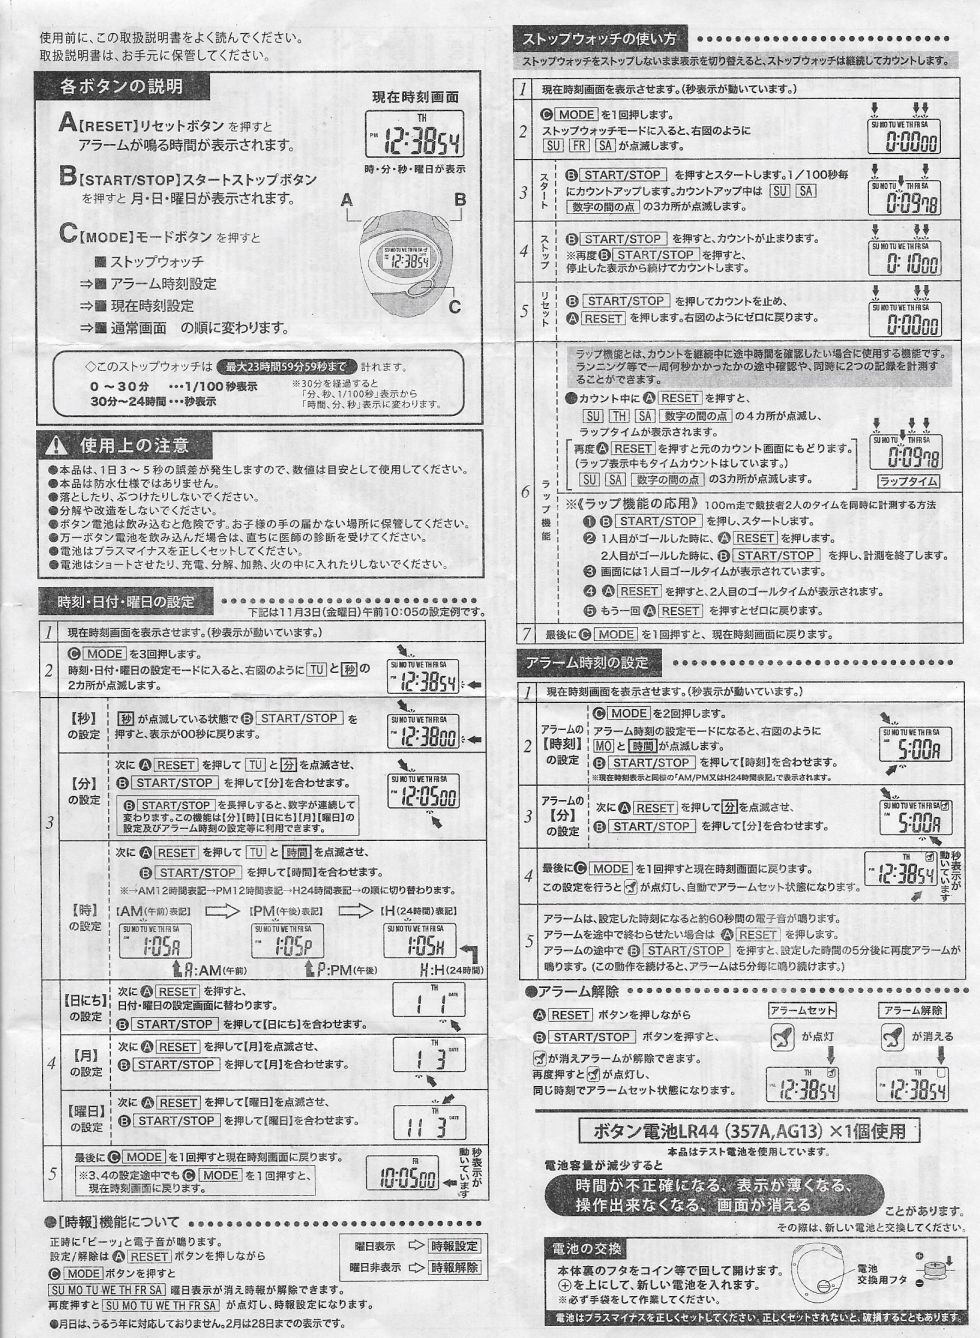 使用前に、この取扱説明書をよく読んでください。
取扱説明書は、お手元に保管してください。
各ボタンの説明
A【RESET】リセットボタン を押すと
アラームが鳴る時間が表示されます。
B【START/STOP】スタートストップボタン
を押すと 月・日・曜日が表示されます。
C【MODE】モードボタン を押すと
■ ストップウォッチ
⇒■ アラーム時刻設定
⇒■ 現在時刻設定
⇒■ 通常画面 の順に変わります。
現在時刻画面
TH
PM 12:3854
時・分・秒・曜日が表示
A
B
C
◇このストップウォッチは 最大23時間59分59秒まで 計れます。
0 〜30分 ・・・1/100秒表示
30分〜24時間・・・秒表示
※30分を経過すると
「分、秒、1/100秒」表示から
「時間、分、秒」表示に変わります。
使用上の注意
●本品は、1日3〜5秒の誤差が発生しますので、数値は目安として使用してください。
●本品は防水仕様ではありません。
●落としたり、ぶつけたりしないでください。
●分解や改造をしないでください。
●ボタン電池は飲み込むと危険です。お子様の手の届かない場所に保管してください。
●万一ボタン電池を飲み込んだ場合は、直ちに医師の診断を受けてください。
●電池はプラスマイナスを正しくセットしてください。
●電池はショートさせたり、充電、分解、加熱、火の中に入れたりしないでください。
時刻・日付・曜日の設定
下記は11月3日(金曜日)午前10:05の設定例です。
1 現在時刻画面を表示させます。(秒表示が動いています。)
2 C MODE を3回押します。
時刻・日付・曜日の設定モードに入ると、右図のように TU と 秒 の
2カ所が点滅します。
SU MO TU WE TH FR SA
PM 12:3854
3
【秒】の設定
秒 が点滅している状態で B START/STOP を
押すと、表示が00秒に戻ります。
SU MO TU WE TH FR SA
PM 12:3800
【分】の設定
次に A RESET を押して TU と 分 を点滅させ、
B START/STOP を押して【分】を合わせます。
B START/STOP を長押しすると、数字が連続して
変わります。この機能は【分】【時】【日にち】【月】【曜日】の
設定及びアラーム時刻の設定等に利用できます。
SU MO TU WE TH FR SA
PM 12:0500
【時】の設定
次に A RESET を押して TU と 時間 を点滅させ、
B START/STOP を押して【時間】を合わせます。
※→AM12時間表記→PM12時間表記→H24時間表記→の順に切り替わります。
【AM(午前)表記】 ⇒ 【PM(午後)表記】 ⇒ 【H(24時間)表記】
SU MO TU WE TH FR SA
1:05A
SU MO TU WE TH FR SA
1:05P
SU MO TU WE TH FR SA
1:05H
A:AM(午前) P:PM(午後) H:H(24時間)
4
【日にち】の設定
次に A RESET を押すと、
日付・曜日の設定画面に替わります。
B START/STOP を押して【日にち】を合わせます。
TH
DATE
1 1
【月】の設定
次に A RESET を押して【月】を点滅させ、
B START/STOP を押して【月】を合わせます。
TH
DATE
1 3
【曜日】の設定
次に A RESET を押して【曜日】を点滅させ、
B START/STOP を押して【曜日】を合わせます。
TH
DATE
11 3
5 最後に C MODE を1回押すと現在時刻画面に戻ります。
※3、4の設定途中でも C MODE を1回押すと、
現在時刻画面に戻ります。
FR
10:0500
秒表示が動いています
●【時報】機能について
正時に「ピーッ」と電子音が鳴ります。
設定/解除は A RESET ボタンを押しながら
C MODE ボタンを押すと
SU MO TU WE TH FR SA 曜日表示が消え時報が解除できます。
再度押すと SU MO TU WE TH FR SA が点灯し、時報設定になります。
●月日は、うるう年に対応しておりません。2月は28日までの表示です。
曜日表示 ⇒ 時報設定
曜日非表示 ⇒ 時報解除
ストップウォッチの使い方
ストップウォッチをストップしないまま表示を切り替えると、ストップウォッチは継続してカウントします。
1 現在時刻画面を表示させます。(秒表示が動いています。)
2 C MODE を1回押します。
ストップウォッチモードに入ると、右図のように
SU FR SA が点滅します。
SU MO TU WE TH FR SA
0:0000
3 スタート
B START/STOP を押すとスタートします。1/100秒毎
にカウントアップします。カウントアップ中は SU SA
数字の間の点 の3カ所が点滅します。
SU MO TU WE TH FR SA
0:0978
4 ストップ
B START/STOP を押すと、カウントが止まります。
※再度 B START/STOP を押すと、
停止した表示から続けてカウントします。
SU MO TU WE TH FR SA
0:1000
5 リセット
B START/STOP を押してカウントを止め、
A RESET を押します。右図のようにゼロに戻ります。
SU MO TU WE TH FR SA
0:0000
6 ラップ機能
ラップ機能とは、カウントを継続中に途中時間を確認したい場合に使用する機能です。
ランニング等で一周何秒かかったかの途中確認や、同時に2つの記録を計測す
ることができます。
●カウント中に A RESET を押すと、
SU TH SA 数字の間の点 の4カ所が点滅し、
ラップタイムが表示されます。
再度 A RESET を押すと元のカウント画面にもどります。
(ラップ表示中もタイムカウントはしています。)
SU SA 数字の間の点 の3カ所が点滅します。
SU MO TU WE TH FR SA
0:0978
ラップタイム
※《ラップ機能の応用》 100m走で競技者2人のタイムを同時に計測する方法
❶ B START/STOP を押し、スタートします。
❷ 1人目がゴールした時に、A RESET を押します。
2人目がゴールした時に、B START/STOP を押し、計測を終了します。
❸ 画面には1人目ゴールタイムが表示されています。
❹ A RESET を押すと、2人目のゴールタイムが表示されます。
❺ もう一回 A RESET を押すとゼロに戻ります。
7 最後に C MODE を1回押すと、現在時刻画面に戻ります。
アラーム時刻の設定
1 現在時刻画面を表示させます。(秒表示が動いています。)
2 アラームの【時刻】の設定
C MODE を2回押します。
アラーム時刻の設定モードになると、右図のように
MO と 時間 が点滅します。
B START/STOP を押して【時刻】を合わせます。
※現在時刻表示と同様の「AM/PM又はH24時間表記」で表示されます。
SU MO TU WE TH FR SA
5:00A
3 アラームの【分】の設定
次に A RESET を押して 分 を点滅させ、
B START/STOP を押して【分】を合わせます。
SU MO TU WE TH FR SA
5:00A
4 最後に C MODE を1回押すと現在時刻画面に戻ります。
この設定を行うと が点灯し、自動でアラームセット状態になります。
TH
PM 12:3854
秒表示が動いています
5 アラームは、設定した時刻になると約60秒間の電子音が鳴ります。
アラームを途中で終わらせたい場合は A RESET を押します。
アラームの途中で B START/STOP を押すと、設定した時間の5分後に再度アラームが
鳴ります。(この動作を続けると、アラームは5分毎に鳴り続けます。)
●アラーム解除
A RESET ボタンを押しながら
B START/STOP ボタンを押すと、
が消えアラームが解除できます。
再度押すと が点灯し、
同じ時刻でアラームセット状態になります。
アラームセット
が点灯
TH
PM 12:3854
アラーム解除
が消える
TH
PM 12:3854
ボタン電池LR44(357A,AG13)×1個使用
本品はテスト電池を使用しています。
電池容量が減少すると
時間が不正確になる、表示が薄くなる、
操作出来なくなる、画面が消える
ことがあります。
その際は、新しい電池と交換してください。
電池の交換
本体裏のフタをコイン等で回して開けます。
⊕を上にして、新しい電池を入れます。
※必ず手袋をして作業してください。
電池交換用フタ
電池はプラスマイナスを正しくセットしてください。正しくセットされないと、破損することもあります。